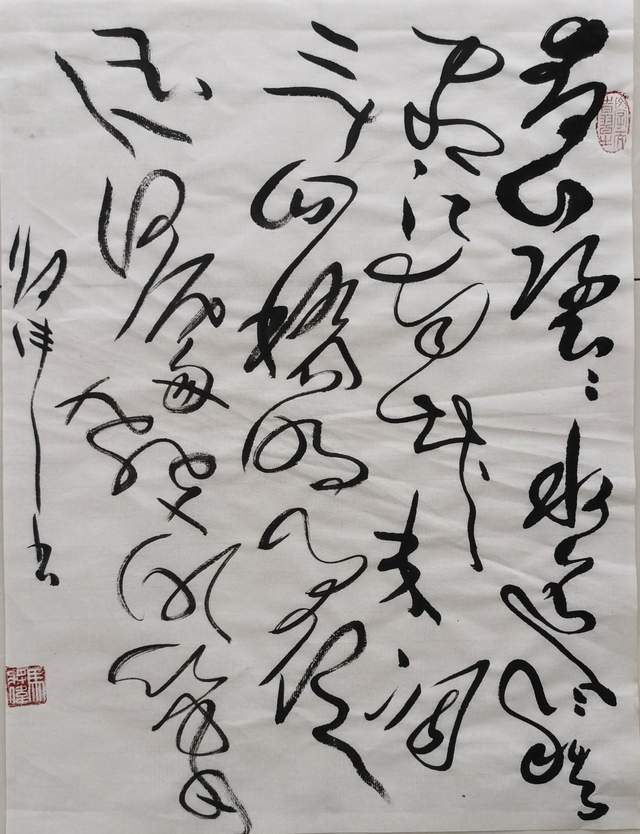 青山隐々水迢々秋
尽江南草未凋
二十四桥明月夜
玉人何处教吹箫
书